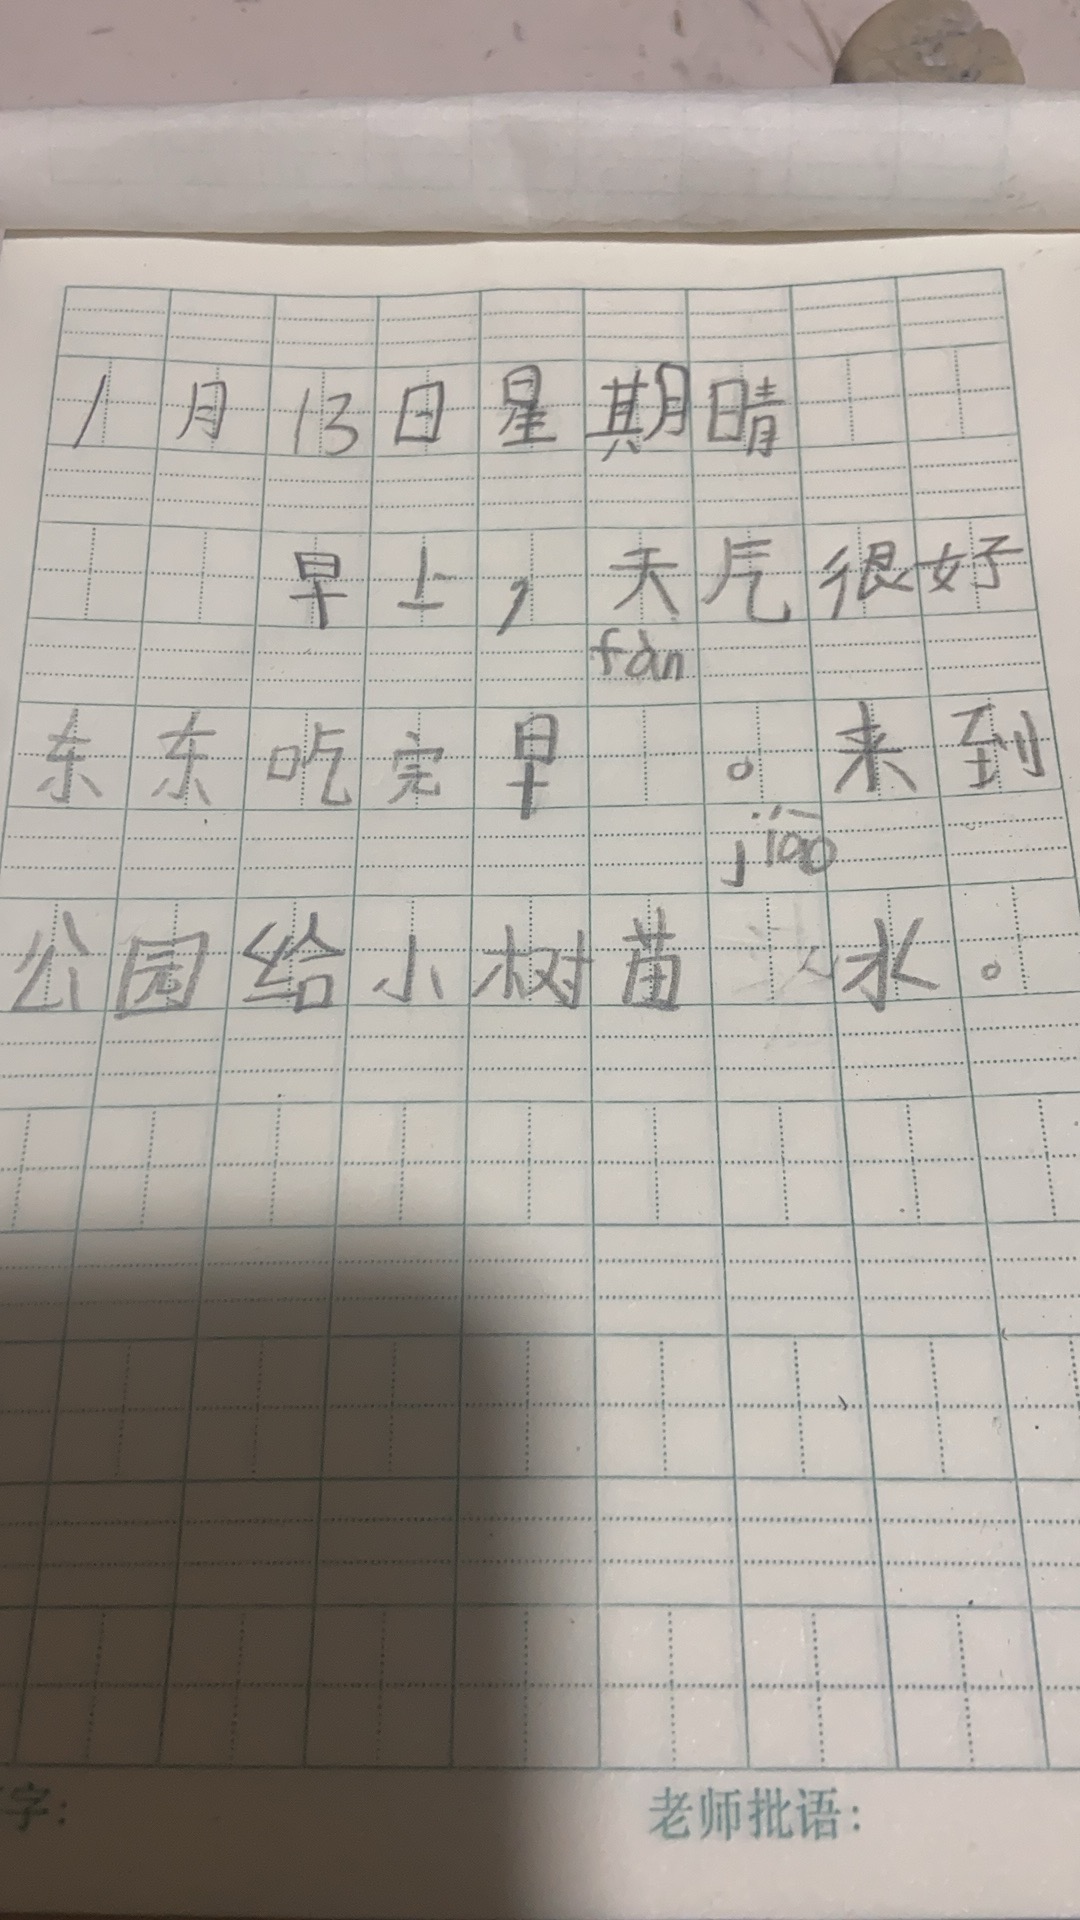 1月13日星期晴
早上，天气很好
fàn
东东吃完早。来到
jiāo
公园给小树苗水。
字：
老师批语：